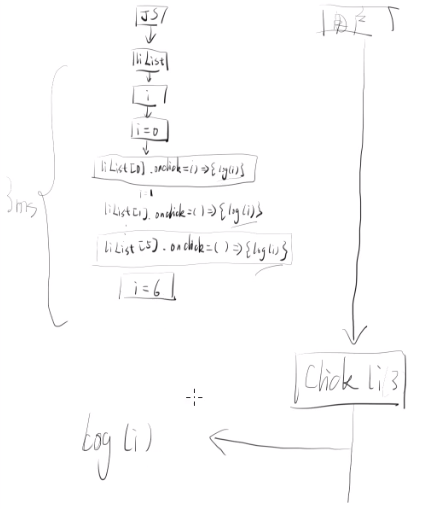 JS
用户
liList
i
i=0
liList[0].onclick=()=>{log(i)}
i=1
liList[1].onclick=()=>{log(i)}
liList[5].onclick=()=>{log(i)}
i=6
3ms
Click li3
log(i)